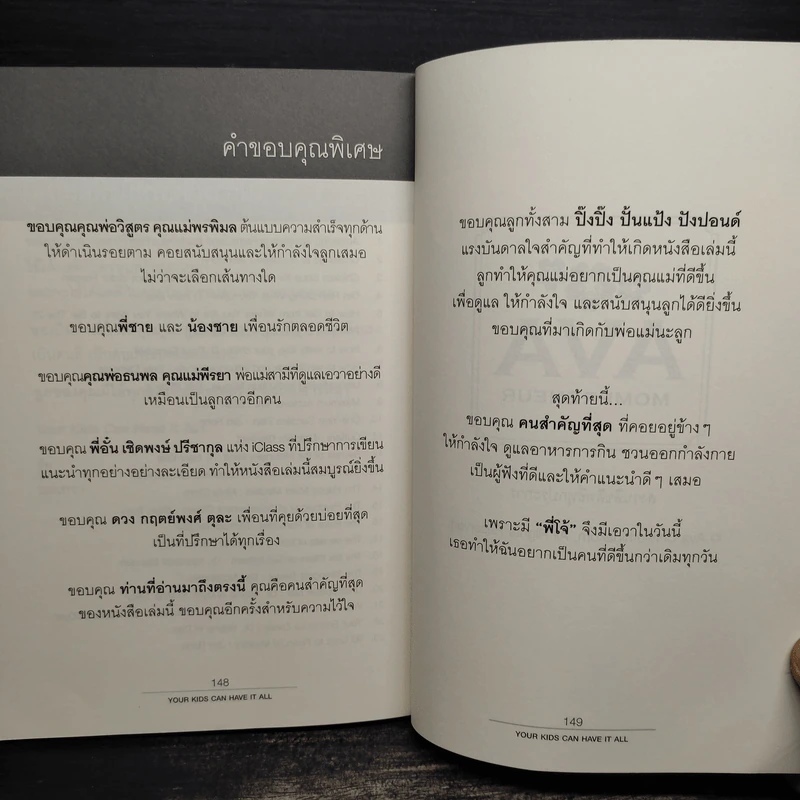 คำขอบคุณพิเศษ
ขอบคุณคุณพ่อวิสูตร คุณแม่พรพิมล ต้นแบบความสำเร็จทุกด้าน
ให้ดำเนินรอยตาม คอยสนับสนุนและให้กำลังใจลูกเสมอ
ไม่ว่าจะเลือกเส้นทางใด
ขอบคุณพี่ชาย และ น้องชาย เพื่อนรักตลอดชีวิต
ขอบคุณคุณพ่อธนพล คุณแม่พีรยา พ่อแม่สามีที่ดูแลเอวาอย่างดี
เหมือนเป็นลูกสาวอีกคน
ขอบคุณ พี่อั๋น เชิดพงษ์ ปรีชากุล แห่ง iClass ที่ปรึกษาการเขียน
แนะนำทุกอย่างอย่างละเอียด ทำให้หนังสือเล่มนี้สมบูรณ์ยิ่งขึ้น
ขอบคุณ ดวง กฤตย์พงศ์ ตุละ เพื่อนที่คุยด้วยบ่อยที่สุด
เป็นที่ปรึกษาได้ทุกเรื่อง
ขอบคุณ ท่านที่อ่านมาถึงตรงนี้ คุณคือคนสำคัญที่สุด
ของหนังสือเล่มนี้ ขอบคุณอีกครั้งสำหรับความไว้ใจ
148
YOUR KIDS CAN HAVE IT ALL
ขอบคุณลูกทั้งสาม ปิ๊งปิ๊ง ปั้นแป้ง ปังปอนด์
แรงบันดาลใจสำคัญที่ทำให้เกิดหนังสือเล่มนี้
ลูกทำให้คุณแม่อยากเป็นคุณแม่ที่ดีขึ้น
เพื่อดูแล ให้กำลังใจ และสนับสนุนลูกได้ดียิ่งขึ้น
ขอบคุณที่มาเกิดกับพ่อแม่นะลูก
สุดท้ายนี้...
ขอบคุณ คนสำคัญที่สุด ที่คอยอยู่ข้างๆ
ให้กำลังใจ ดูแลอาหารการกิน ชวนออกกำลังกาย
เป็นผู้ฟังที่ดีและให้คำแนะนำดีๆ เสมอ
เพราะมี “พี่โจ้” จึงมีเอวาในวันนี้
เธอทำให้ฉันอยากเป็นคนที่ดีขึ้นกว่าเดิมทุกวัน
149
YOUR KIDS CAN HAVE IT ALL